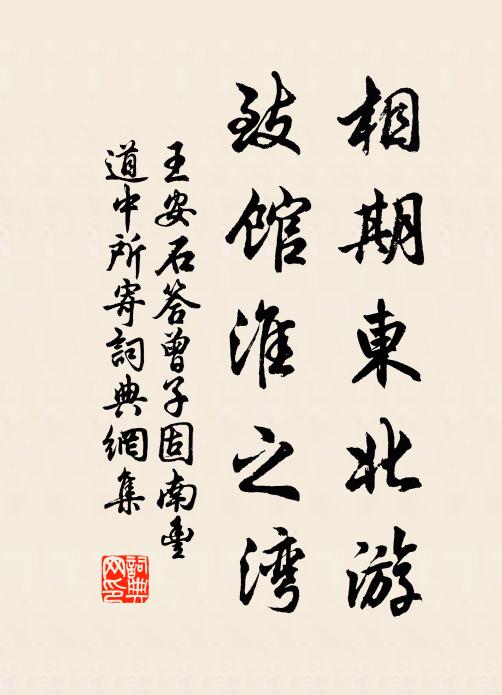 相期東北游
致馆淮之湾
王安石答曾子固南豊
道中所寄詞典網集
詞典
网印